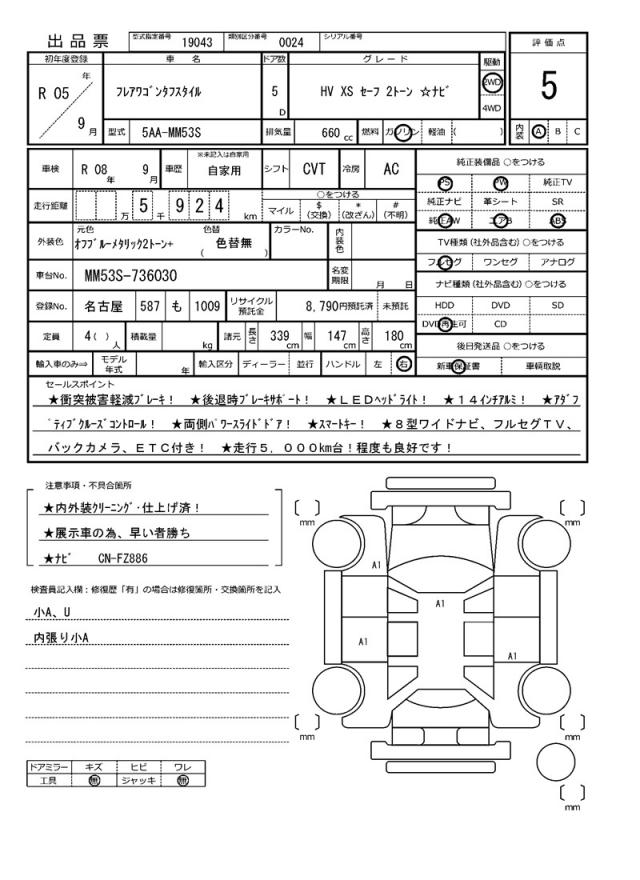 出品票
型式指定番号 19043 類別区分番号 0024 シリアル番号
評価点
5
内装 A B C
初年度登録 車名 ドア数 グレード 駆動
R 05 年 9 月
フレアワゴンタフスタイル 5 D HV XS セーフ 2トーン ☆ナビ 2WD 4WD
型式 5AA-MM53S 排気量 660 cc 燃料 ガソリン 軽油 ( )
車検 R 08 年 9 月 車歴 ※未記入は自家用 自家用 シフト CVT 冷房 AC
走行距離 万 5 9 2 4 km ○をつける
マイル $(交換) *(改ざん) #(不明)
外装色 元色 オフブルーメタリック2トーン+ 色替 ( 色替無 ) カラーNo. 内装色
車台No. MM53S-736030 名変期限 月 日
登録No. 名古屋 587 も 1009 リサイクル預託金 8,790円預託済 未預託
定員 4( )人 積載量 kg 諸元 長さ 339 cm 幅 147 cm 高さ 180 cm
輸入車のみ⇒ モデル年式 年 輸入区分 ディーラー 並行 ハンドル 左 右
純正装備品 ○をつける
PS PW 純正TV
純正ナビ 革シート SR
純正AW エアB ABS
TV種類(社外品含む) ○をつける
フルセグ ワンセグ アナログ
ナビ種類(社外品含む) ○をつける
HDD DVD SD
DVD再生可 CD
後日発送品 ○をつける
新車保証書 車輌取説
セールスポイント
★衝突被害軽減ブレーキ! ★後退時ブレーキサポート! ★LEDヘッドライト! ★14インチアルミ! ★アダプ
ティブクルーズコントロール! ★両側パワースライドドア! ★スマートキー! ★8型ワイドナビ、フルセグTV、
バックカメラ、ETC付き! ★走行5,000km台!程度も良好です!
注意事項・不具合箇所
★内外装クリーニング・仕上げ済!
★展示車の為、早い者勝ち
★ナビ CN-FZ886
検査員記入欄:修復歴「有」の場合は修復箇所・交換箇所を記入
小A、U
内張り小A
ドアミラー キズ ヒビ ワレ
工具 無 ジャッキ 無
mm mm
A1
A1
A1 A1
mm mm
mm